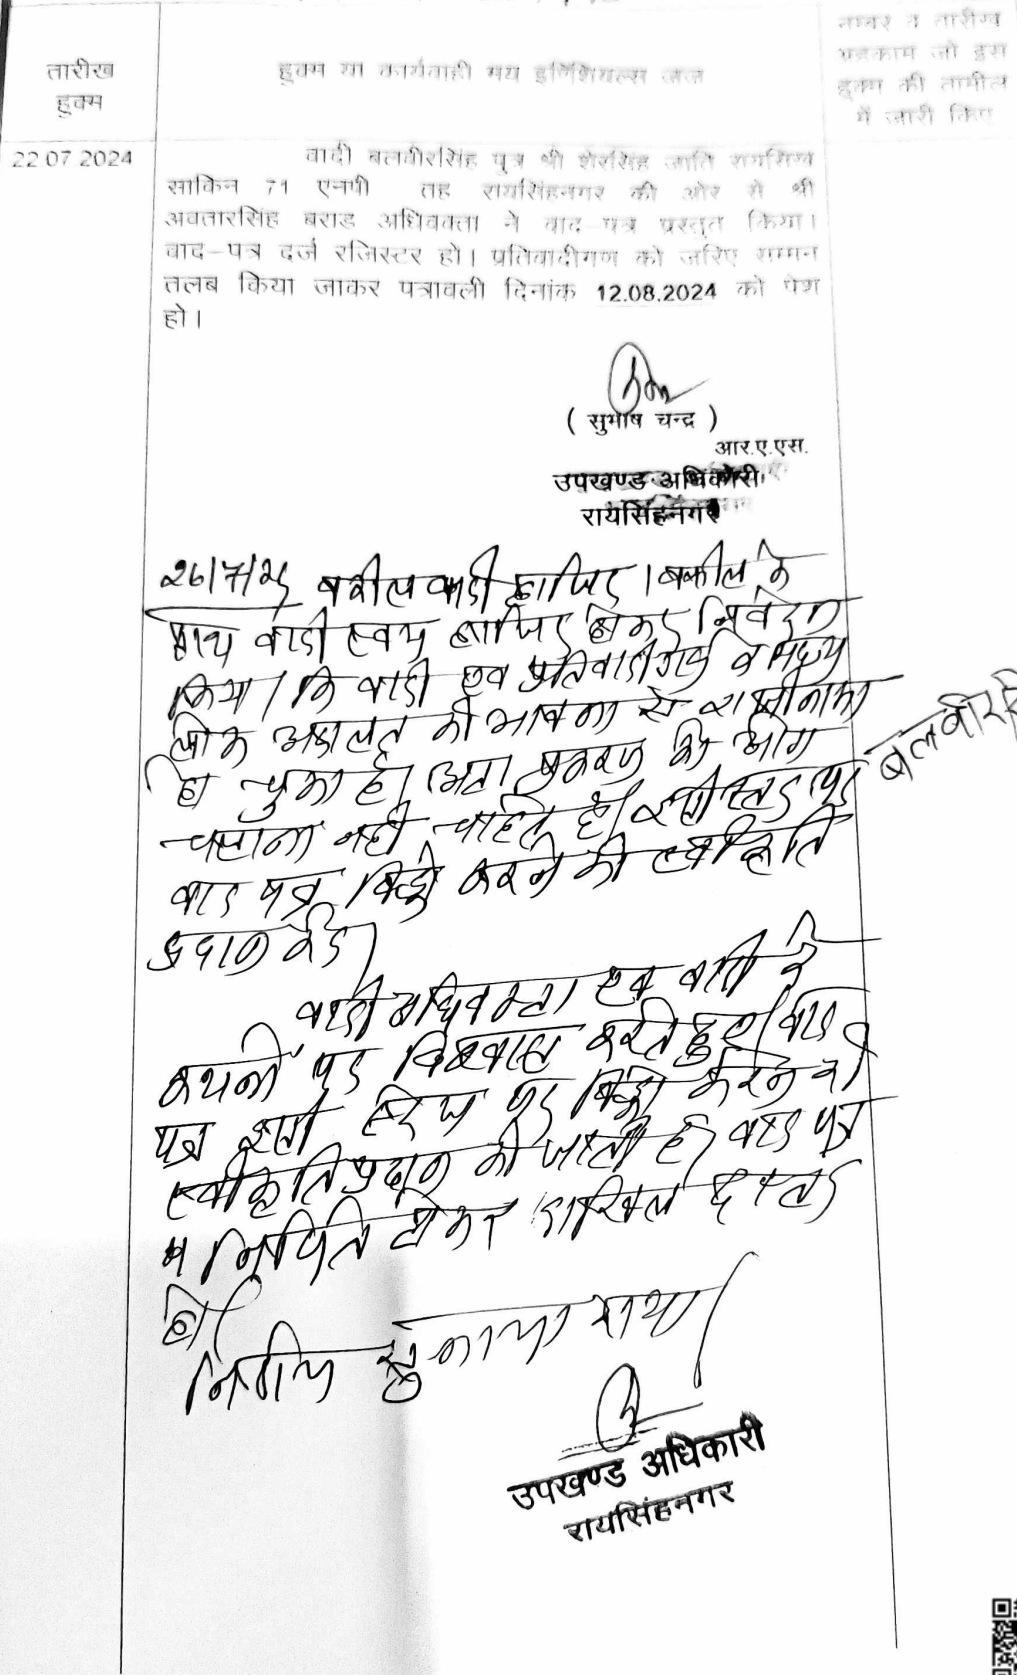 तारीख
हुक्म
हुक्म या कार्यवाही मय इनिशियल्स जज
नम्बर व तारीख
अहकाम जो इस
हुक्म की तामील
में जारी किए
22.07.2024
वादी बलवीरसिंह पुत्र श्री शेरसिंह जाति रायसिख
साकिन 71 एनपी तह रायसिंहनगर की ओर से श्री
अवतारसिंह बराड अधिवक्ता ने वाद-पत्र प्रस्तुत किया।
वाद-पत्र दर्ज रजिस्टर हो। प्रतिवादीगण को जरिए सम्मन
तलब किया जाकर पत्रावली दिनांक 12.08.2024 को पेश
हो।
( सुभाष चन्द्र )
आर.ए.एस.
उपखण्ड अधिकारी
रायसिंहनगर
वकील वादी हाजिर। वकील के
साथ वादी स्वयं हाजिर होकर निवेदन
किया कि वादी एवं प्रतिवादीगण के मध्य
लोक अदालत की भावना से राजीनामा
हो चुका है। अतः प्रकरण को आगे
चलाना नहीं चाहते है। इसी स्तर पर
वाद पत्र विड्रो करने की स्वीकृति
प्रदान करें।
बलवीर
वादी अधिवक्ता एवं वादी के
कथनों पर विश्वास करते हुए वाद
पत्र इसी स्टेज पर विड्रो करने की
स्वीकृति प्रदान की जाती है। वाद पत्र
निर्णित होकर दाखिल दफ्तर
हो।
निर्णय सुनाया गया।
उपखण्ड अधिकारी
रायसिंहनगर